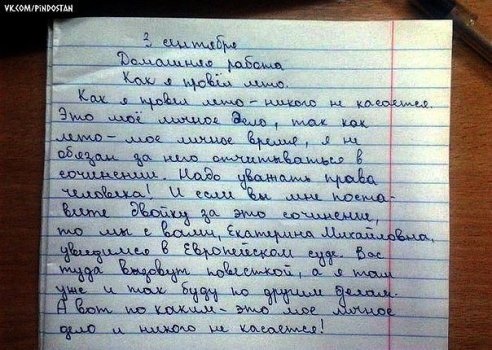 VK.COM/PINDOSTAN
3 сентября
Домашняя работа
Как я провёл лето.
Как я провёл лето - никого не касается.
Это моё личное дело, так как
лето - мое личное время, я не
обязан за него отчитываться в
сочинении. Надо уважать права
человека! И если вы мне поста-
вите двойку за это сочинение,
то мы с вами, Екатерина Михайловна,
увидимся в Европейском суде. Вас
туда вызовут повесткой, а я там
уже и так буду по другим делам.
А вот по каким - это мое личное
дело и никого не касается!